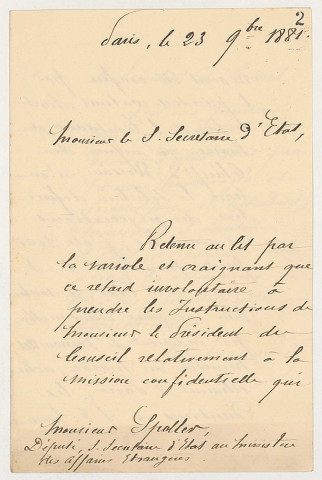 2
Paris, le 23 9bre 1881.
Monsieur le S. Secrétaire d'Etat,
Retenu au lit par
la variole et craignant que
ce retard involontaire à
prendre les Instructions de
Monsieur le Président du
Conseil relativement à la
mission confidentielle qui
Monsieur Spuller,
Député, S. Secrétaire d'Etat au Ministère
des Affaires Etrangères.